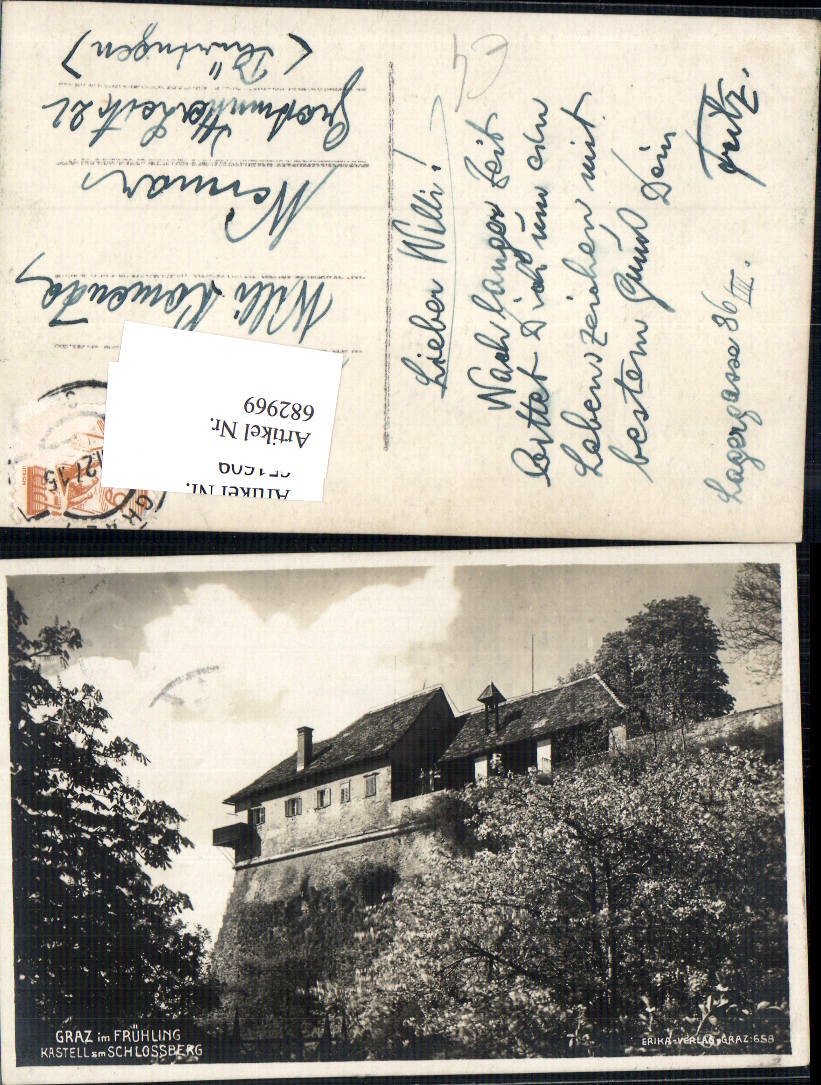 Lieber Willi!
Nach langer Zeit
bittet Dich um ein
Lebenszeichen mit
bestem Gruß Dein
Fritz.
Lagergasse 86
III.
Willi
Weimar
(Thüringen)
Artikel Nr.
682969
Artikel Nr.
GRAZ im FRÜHLING
KASTELL am SCHLOSSBERG
ERIKA-VERLAG, GRAZ: 658